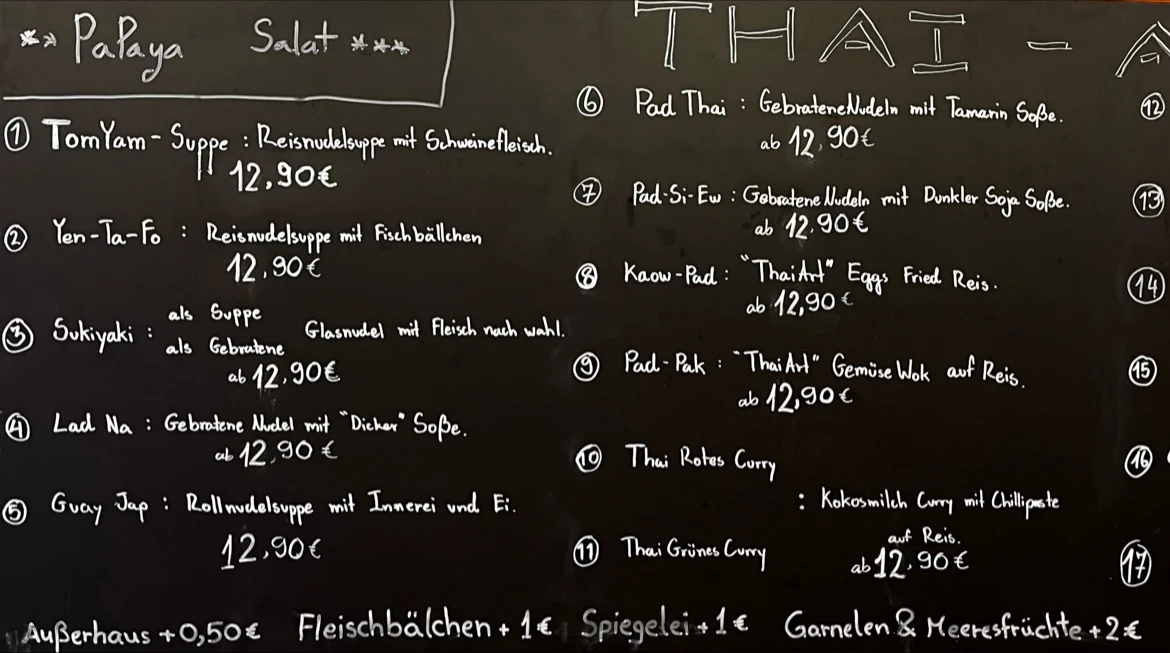 ** PaPaya Salat ***
① TomYam-Suppe : Reisnudelsuppe mit Schweinefleisch.
12,90€
② Yen-Ta-Fo : Reisnudelsuppe mit Fischbällchen
12,90€
③ Sukiyaki : als Suppe
als Gebratene
Glasnudel mit Fleisch nach wahl.
ab 12,90€
④ Lad Na : Gebratene Nudel mit "Dicker" Soße.
ab 12,90€
⑤ Guay Jap : Rollnudelsuppe mit Innerei und Ei.
12,90€
THAI - A
⑥ Pad Thai : Gebratene Nudeln mit Tamarin Soße.
ab 12,90€
⑦ Pad-Si-Ew : Gebratene Nudeln mit Dunkler Soja Soße.
ab 12.90€
⑧ Kaow-Pad : "Thai Art" Eggs Fried Reis.
ab 12,90€
⑨ Pad-Pak : "Thai Art" Gemüse Wok auf Reis.
ab 12,90€
⑩ Thai Rotes Curry
: Kokosmilch Curry mit Chillipaste
auf Reis.
⑪ Thai Grünes Curry
ab 12,90€
⑫
⑬
⑭
⑮
⑯
⑰
Außerhaus +0,50€ Fleischbälchen + 1€ Spiegelei + 1€ Garnelen & Meeresfrüchte +2€